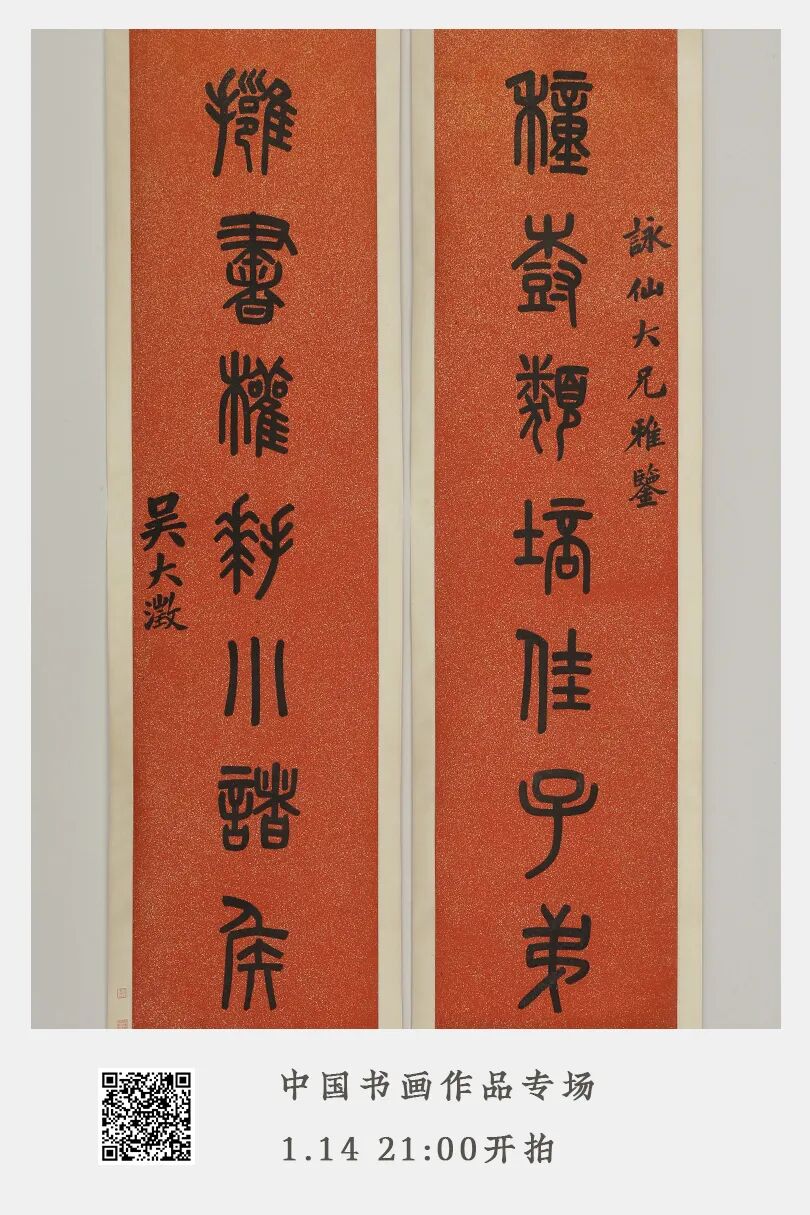 詠仙大兄雅鑒
種樹類培佳子弟
擁書權拜小諸侯
吳大澂
中国书画作品专场
1.14 21:00开拍